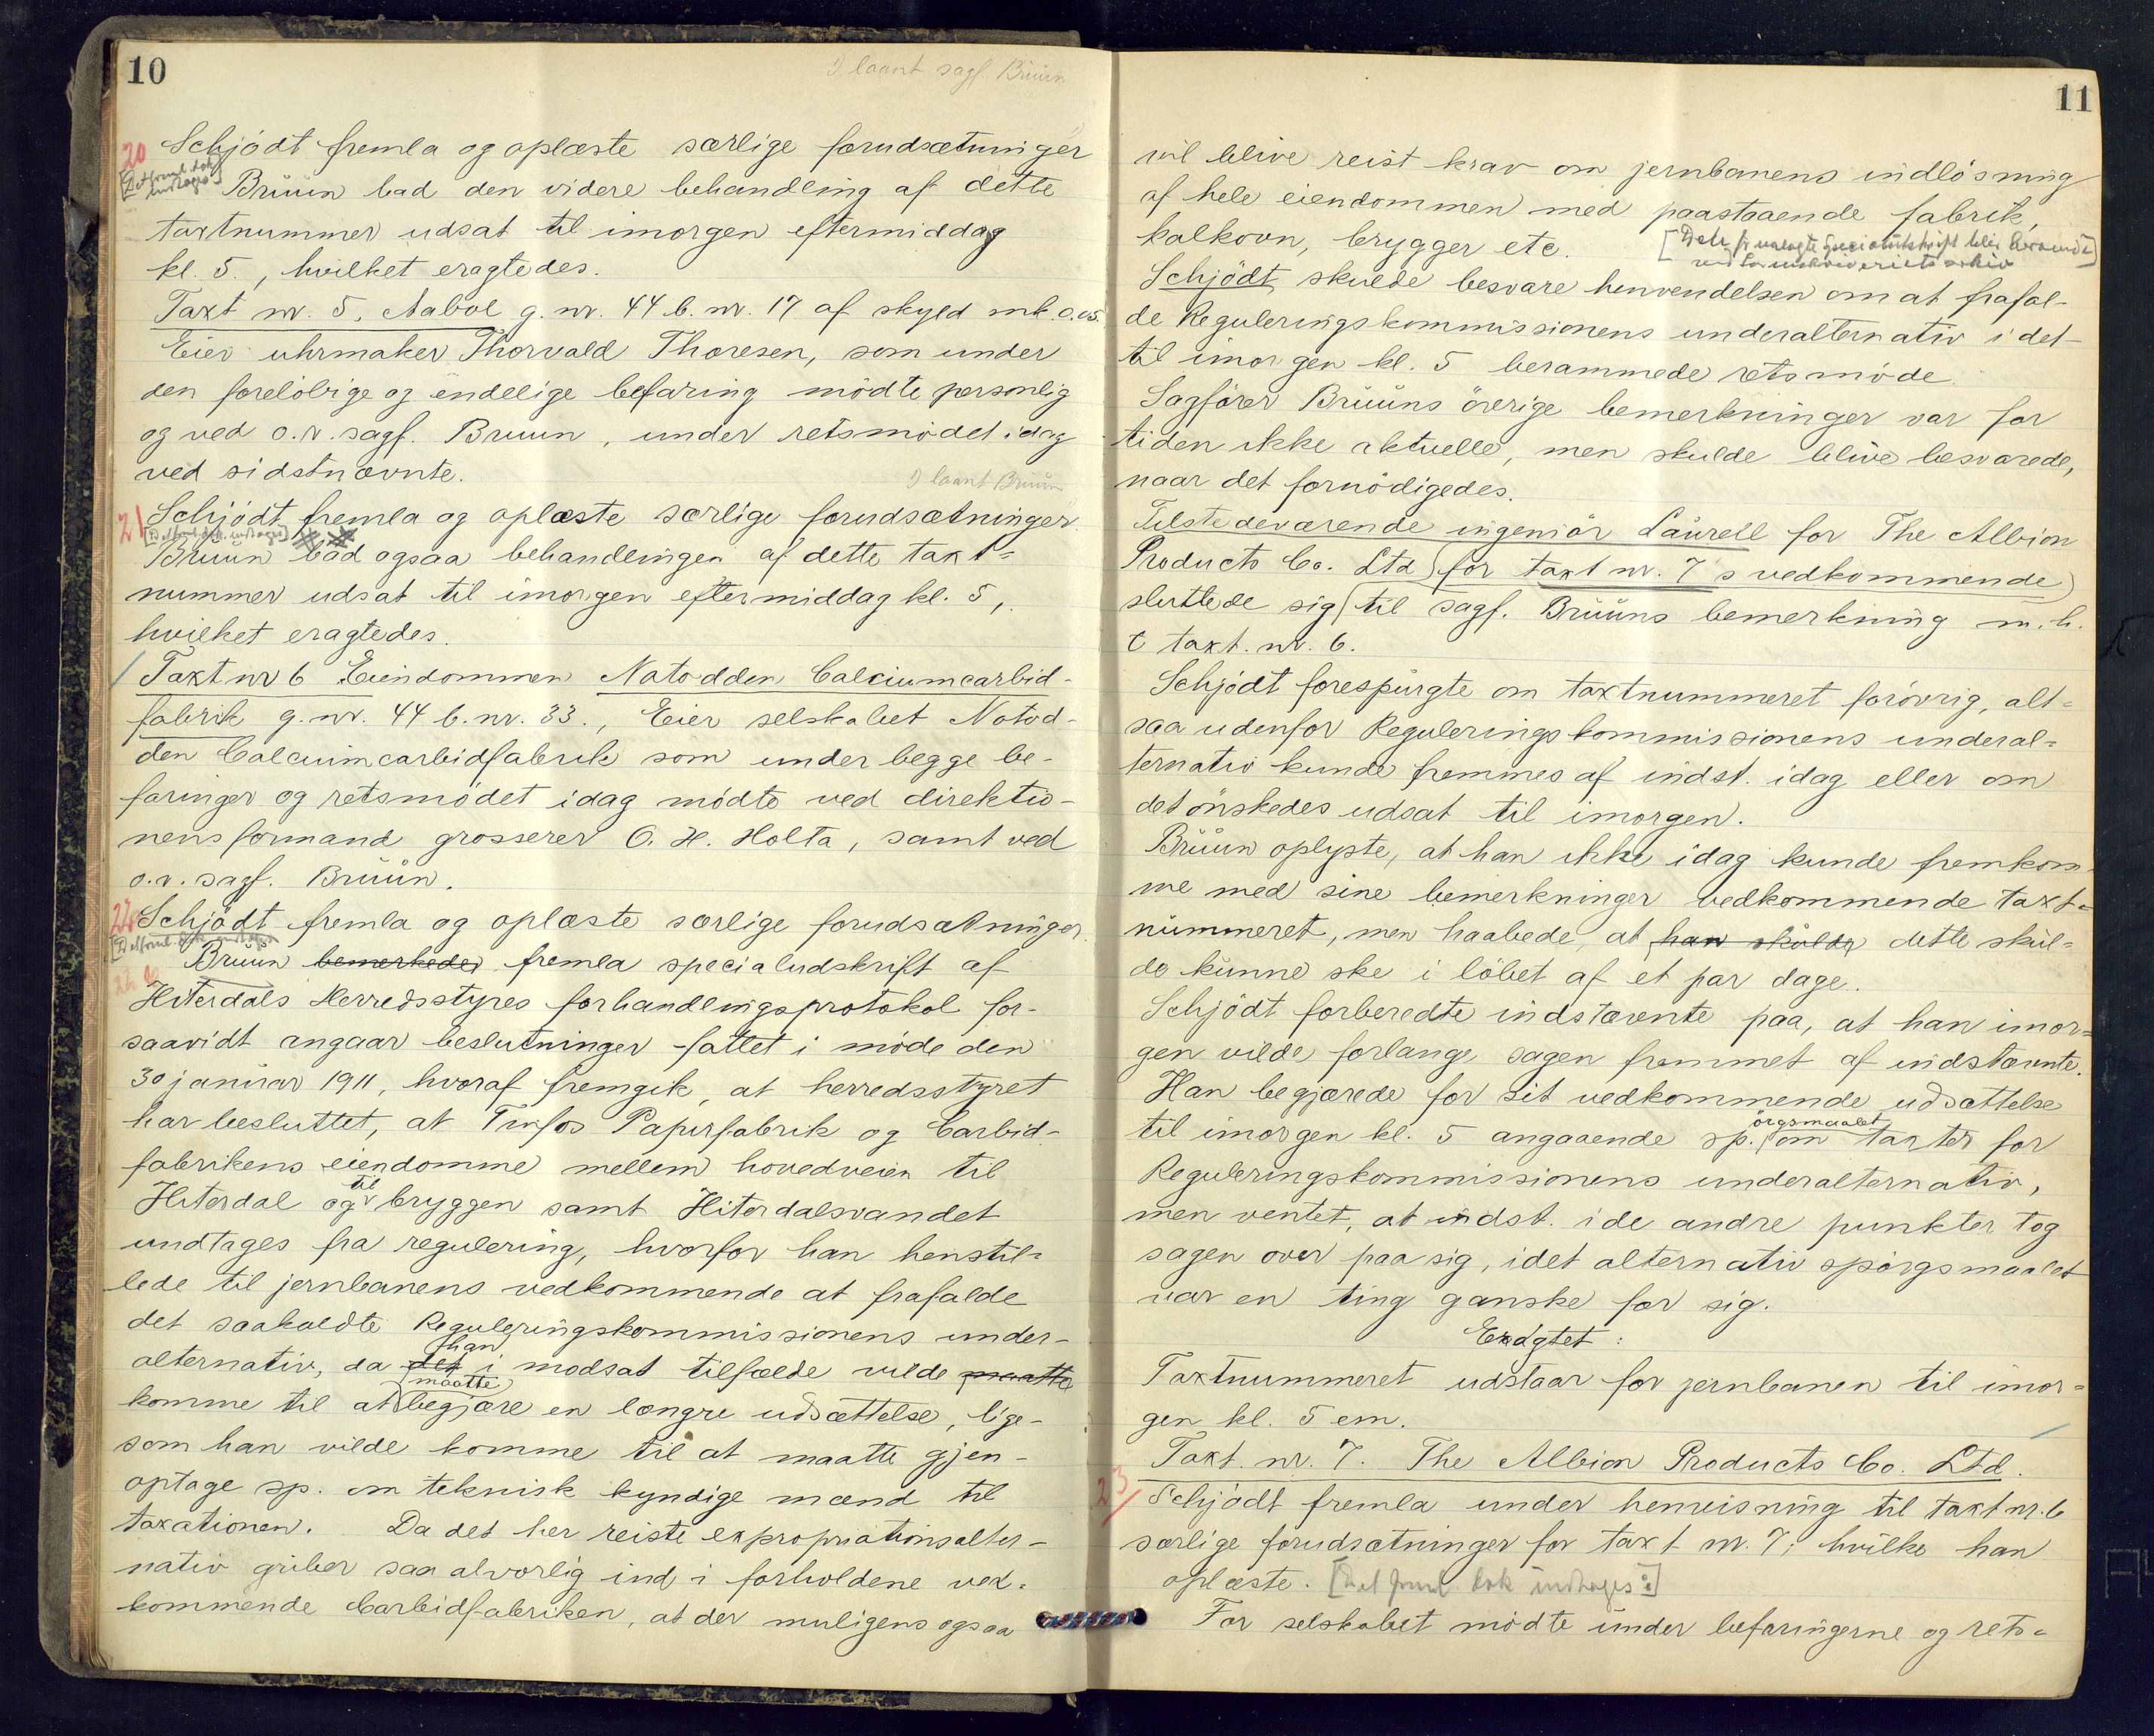 10
1) laant sagf. Bruun
20 Schjödt fremla og oplæste særlige forudsætninger
[Det freml. dok. indtages]
Bruun bad den videre behandling af dette
taxtnummer udsat til imorgen eftermiddag
kl. 5., hvilket eragtedes.
Taxt nr. 5, Nabol g. nr. 44 b. nr. 17 af skyld mk. 0.05.
Eier uhrmaker Thorvald Thoresen, som under
den forelöbige og endelige befaring mödte personlig
og ved o.r. sagf. Bruun, under retsmödet idag
ved sidstnævnte.
1) laant Bruun
21 Schjödt fremla og oplæste særlige forudsætninger.
[Det freml. dok. indtages]
Bruun bad ogsaa behandlingen af dette taxt-
nummer udsat til imorgen eftermiddag kl. 5,
hvilket eragtedes.
Taxt nr 6 Eiendommen Notodden Calciumcarbid-
fabrik g. nr. 44 b. nr. 33., Eier selskabet Notod-
den Calciumcarbidfabrik som under begge be-
faringer og retsmödet idag mödte ved direktio-
nens formand grosserer O. H. Holta, samt ved
o.r. sagf. Bruun.
22 Schjödt fremla og oplæste særlige forudsætninger.
[Det freml. dok. indtages]
Bruun bemerkede fremla specialudskrift af
Hiterdals Herredsstyres forhandlingsprotokol for-
saavidt angaar beslutninger fattet i möde den
30 januar 1911, hvoraf fremgik, at herredsstyret
har besluttet, at Tinfos Papirfabrik og Carbid-
fabrikens eiendomme mellem hovedveien til
Hiterdal og til bryggen samt Hiterdalsvandet
undtages fra regulering, hvorfor han henstil-
lede til jernbanens vedkommende at frafalde
det saakaldte Reguleringskommissionens under-
alternativ, da det han i modsat tilfælde vilde maatte
komme til at maatte begjære en længre udsættelse, lige-
som han vilde komme til at maatte gjen-
optage sp. om teknisk kyndige mænd til
taxationen. Da det her reiste expropriationsalter-
nativ griber saa alvorlig ind i forholdene ved-
kommende Carbidfabriken, at der muligens ogsaa
11
vil blive reist krav om jernbanens indlösning
af hele eiendommen med paastaaende fabrik,
kalkovn, brygger etc.
[Det fremlagte specialutskrift blir beroende
ved Sorenskriveriets arkiv]
Schjödt skulde besvare henvendelsen om at frafal-
de Reguleringskommissionens underalternativ i det
til imorgen kl. 5 berammede retsmöde.
Sagförer Bruuns övrige bemerkninger var for
tiden ikke aktuelle, men skulde blive besvarede,
naar det fornödigedes.
Tilstedeværende ingeniör Laurell for The Albion
Products Co. Ltd (for taxt nr. 7's vedkommende)
sluttede sig til sagf. Bruuns bemerkning m. h.
t taxt. nr. 6.
Schjödt forespurgte om taxtnummeret forövrig, alt-
saa udenfor Reguleringskommissionens underal-
ternativ kunde fremmes af indst. idag eller om
det önskedes udsat til imorgen.
Bruun oplyste, at han ikke idag kunde fremkom-
me med sine bemerkninger vedkommende taxt-
nummeret, men haabede, at han skulde dette skul-
de kunne ske i löbet af et par dage.
Schjödt forberedte indstævnte paa, at han imor-
gen vilde forlange sagen fremmet af indstævnte.
Han begjærede for sit vedkommende udsættelse
til imorgen kl. 5 angaaende sp.örgsmaalet om taxter for
Reguleringskommissionens underalternativ,
men ventet, at indst. i de andre punkter tog
sagen over paa sig, idet alternativ spörgsmaalet
var en ting ganske for sig.
Eragtet:
Taxtnummeret udstaar for jernbanen til imor-
gen kl. 5 em.
Taxt. nr. 7. The Albion Products Co. Ltd.
23 Schjödt fremla under henvisning til taxt nr. 6
særlige forudsætninger for taxt nr. 7, hvilke han
oplæste. [Det freml. dok indtages:]
For selskabet mödte under befaringerne og rets-